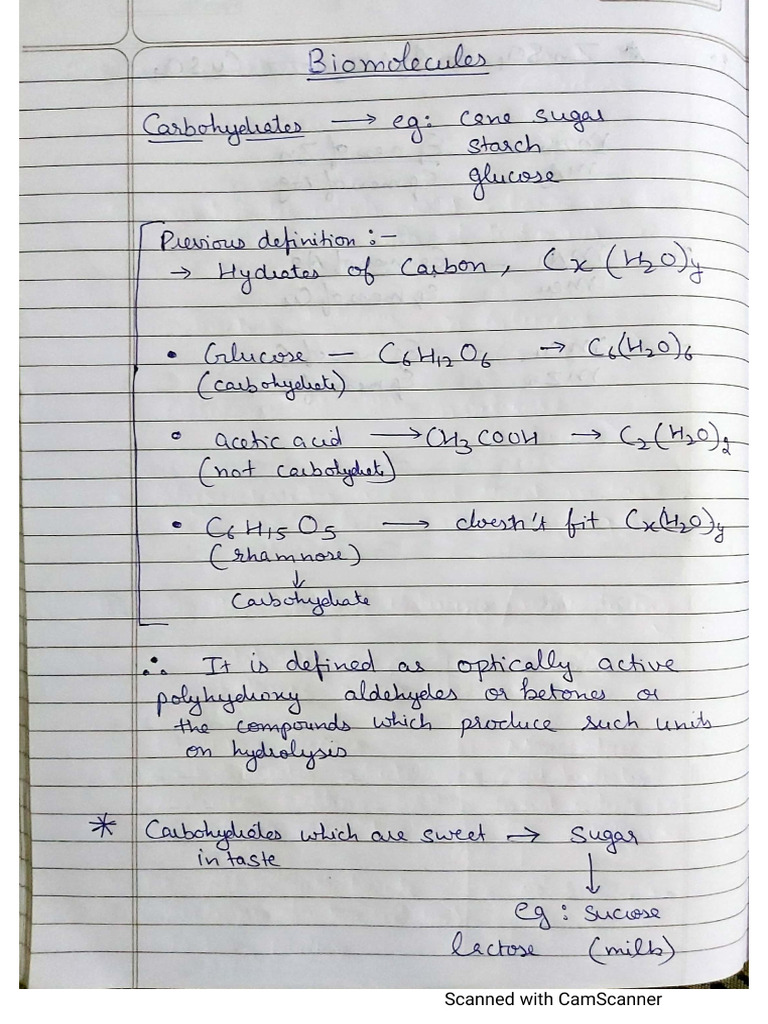 Biomolecules
Carbohydrates → eg: cane sugar
starch
glucose
Previous definition :-
→ Hydrates of Carbon, Cx(H2O)y
• Glucose — C6H12O6 → C6(H2O)6
(carbohydrate)
• acetic acid → CH3COOH → C2(H2O)2
(not carbohydrate)
• C6H15O5 → doesn't fit Cx(H2O)y
(rhamnose)
↓
Carbohydrate
∴ It is defined as optically active
polyhydroxy aldehydes or ketones or
the compounds which produce such units
on hydrolysis
* Carbohydrates which are sweet → Sugar
in taste
↓
eg : sucrose
lactose (milk)
Scanned with CamScanner